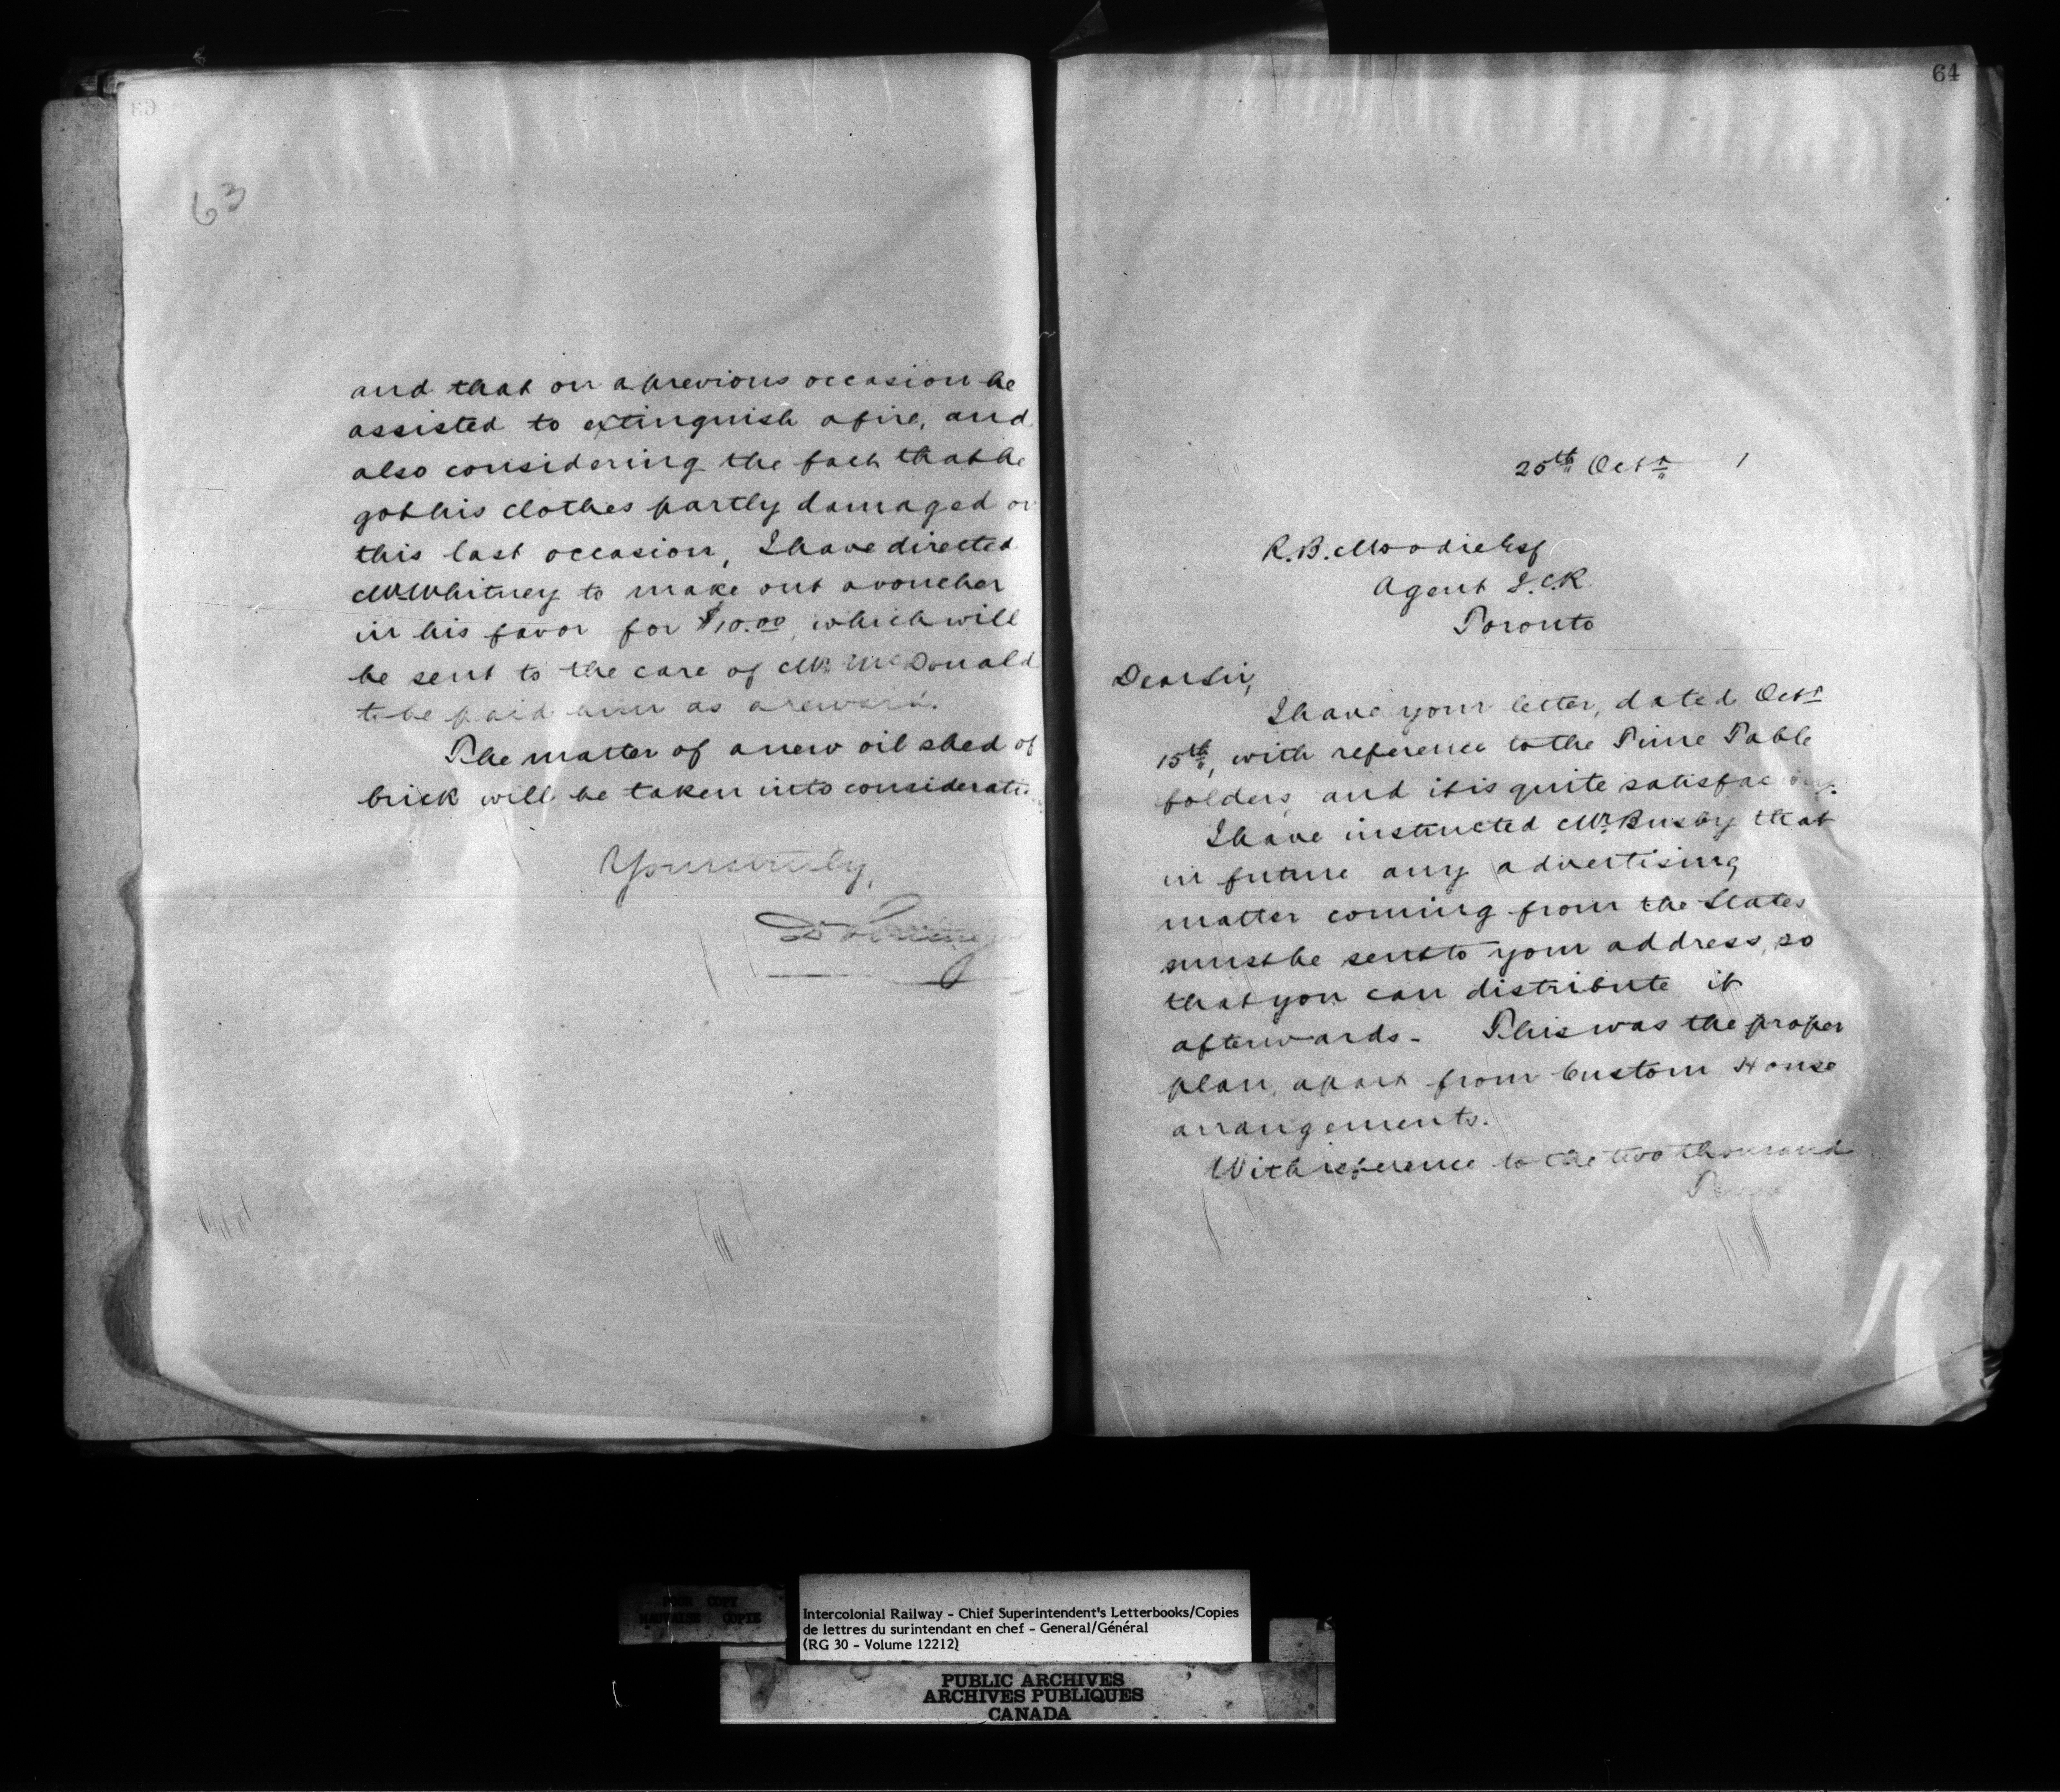 63
63
and that on a previous occasion he
assisted to extinguish a fire, and
also considering the fact that he
got his clothes partly damaged on
this last occasion, I have directed
Mr. Whitney to make out a voucher
in his favor for $10.00 which will
be sent to the care of Mr. McDonald
to be paid him as a reward.
The matter of a new oil shed of
brick will be taken into consideratio
Yours truly,
D Pottinger
64
25th Octr 1
R. B. Moodie Esq
Agent I.C.R.
Toronto
Dear Sir,
I have your letter, dated Octr
15th, with reference to the Time Table
folders, and it is quite satisfactory.
I have instructed Mr. Busby that
in future any advertising
matter coming from the States
must be sent to your address, so
that you can distribute it
afterwards. This was the proper
plan, apart from Custom House
arrangements.
With reference to the two thousand
POOR COPY
MAUVAISE COPIE
Intercolonial Railway - Chief Superintendent's Letterbooks/Copies
de lettres du surintendant en chef - General/Général
(RG 30 - Volume 12212)
PUBLIC ARCHIVES
ARCHIVES PUBLIQUES
CANADA